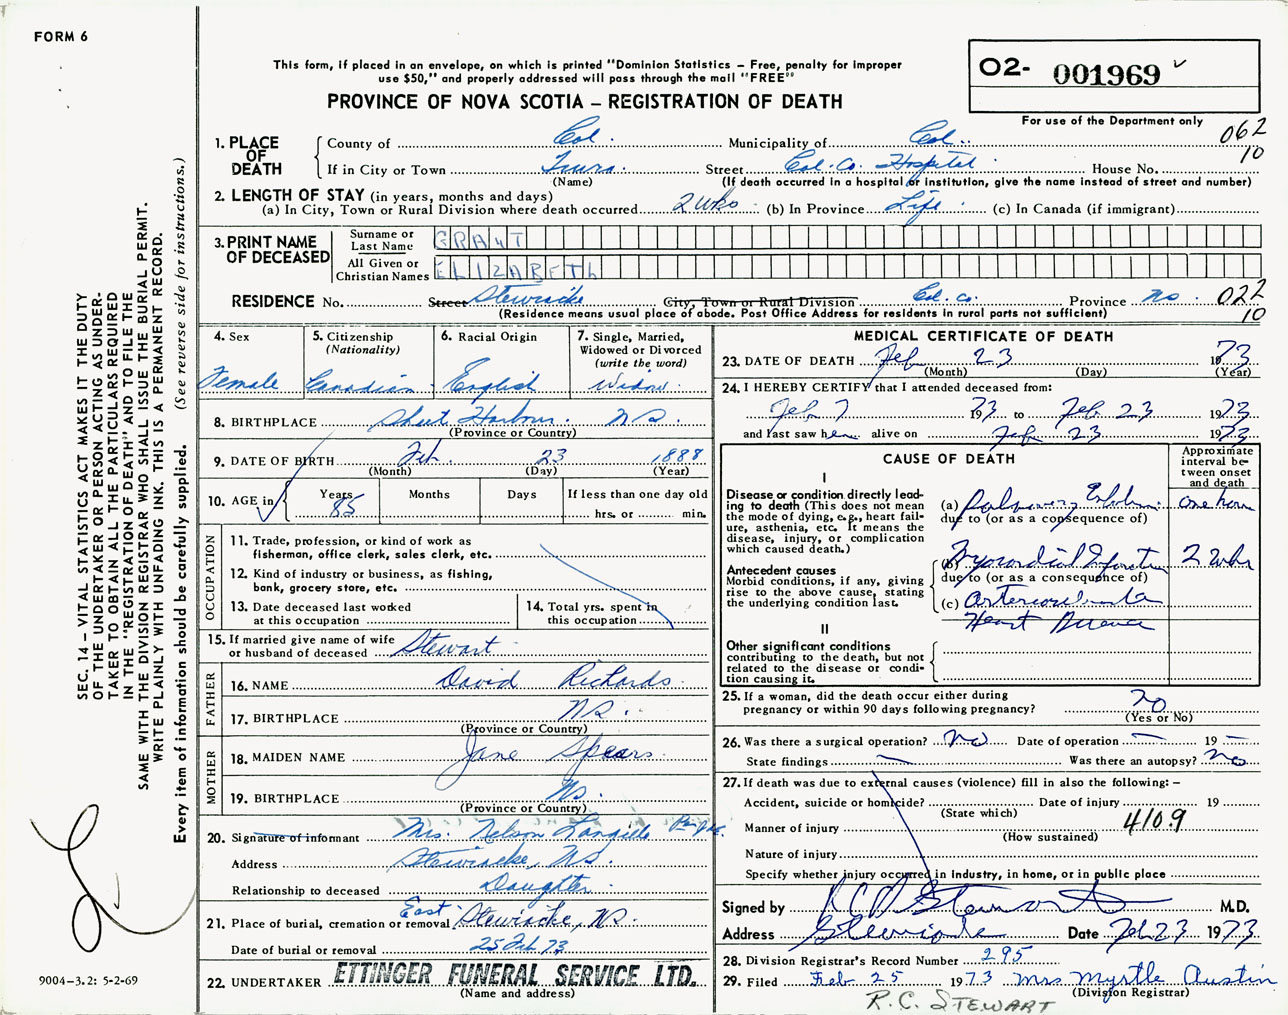 FORM 6
This form, if placed in an envelope, on which is printed "Dominion Statistics – Free, penalty for improper
use $50," and properly addressed will pass through the mail "FREE"
PROVINCE OF NOVA SCOTIA – REGISTRATION OF DEATH
O2- 001969
For use of the Department only
062
10
1. PLACE OF DEATH
County of Col. Municipality of Col.
If in City or Town Truro. Street Col. Co. Hospital House No.
(Name) (If death occurred in a hospital or institution, give the name instead of street and number)
2. LENGTH OF STAY (in years, months and days)
(a) In City, Town or Rural Division where death occurred 2 wks (b) In Province Life (c) In Canada (if immigrant)
3. PRINT NAME OF DECEASED
Surname or Last Name GRANT
All Given or Christian Names ELIZABETH
RESIDENCE No. Street Stewiacke City, Town or Rural Division Col. Co. Province NS. 022
10
(Residence means usual place of abode. Post Office Address for residents in rural parts not sufficient)
4. Sex Female
5. Citizenship (Nationality) Canadian
6. Racial Origin English
7. Single, Married, Widowed or Divorced (write the word) Widow
8. BIRTHPLACE Sheet Harbour NS.
(Province or Country)
9. DATE OF BIRTH Feb. 23 1888
(Month) (Day) (Year)
10. AGE in Years 85 Months Days If less than one day old
hrs. or min.
OCCUPATION
11. Trade, profession, or kind of work as
fisherman, office clerk, sales clerk, etc.
12. Kind of industry or business, as fishing,
bank, grocery store, etc.
13. Date deceased last worked
at this occupation
14. Total yrs. spent in
this occupation
15. If married give name of wife
or husband of deceased Stewart
FATHER
16. NAME David Richards
17. BIRTHPLACE NS.
(Province or Country)
MOTHER
18. MAIDEN NAME Jane Spears
19. BIRTHPLACE NS.
(Province or Country)
20. Signature of informant Mrs. Nelson Langille
Address Stewiacke, NS.
Relationship to deceased Daughter
21. Place of burial, cremation or removal East Stewiacke, NS.
Date of burial or removal 25 Feb 73
22. UNDERTAKER ETTINGER FUNERAL SERVICE LTD.
(Name and address)
MEDICAL CERTIFICATE OF DEATH
23. DATE OF DEATH Feb 23 1973
(Month) (Day) (Year)
24. I HEREBY CERTIFY that I attended deceased from:
Feb 7 1973 to Feb 23 1973
and last saw her alive on Feb 23 1973
CAUSE OF DEATH
Approximate interval between onset and death
I
Disease or condition directly lead-
ing to death (This does not mean
the mode of dying, e.g., heart fail-
ure, asthenia, etc. It means the
disease, injury, or complication
which caused death.)
(a) Pulmonary Embolism one hour
due to (or as a consequence of)
Antecedent causes
Morbid conditions, if any, giving
rise to the above cause, stating
the underlying condition last.
(b) Myocardial Infarction 2 wks
due to (or as a consequence of)
(c) Arteriosclerotic
Heart Disease
II
Other significant conditions
contributing to the death, but not
related to the disease or condi-
tion causing it.
25. If a woman, did the death occur either during
pregnancy or within 90 days following pregnancy? no
(Yes or No)
26. Was there a surgical operation? No Date of operation — 19 —
State findings — Was there an autopsy? no
27. If death was due to external causes (violence) fill in also the following: –
Accident, suicide or homicide? Date of injury 19
(State which)
Manner of injury 4109
(How sustained)
Nature of injury
Specify whether injury occurred in industry, in home, or in public place
Signed by R C D Stewart M.D.
Address Stewiacke Date Feb 23 1973
28. Division Registrar's Record Number 295
29. Filed Feb 25 1973 Mrs Myrtle Austin
(Division Registrar)
R.C. STEWART
SEC. 14 – VITAL STATISTICS ACT MAKES IT THE DUTY
OF THE UNDERTAKER OR PERSON ACTING AS UNDER-
TAKER TO OBTAIN ALL THE PARTICULARS REQUIRED
IN THE "REGISTRATION OF DEATH" AND TO FILE THE
SAME WITH THE DIVISION REGISTRAR WHO SHALL ISSUE THE BURIAL PERMIT.
WRITE PLAINLY WITH UNFADING INK. THIS IS A PERMANENT RECORD.
Every item of information should be carefully supplied. (See reverse side for instructions.)
9004–3.2: 5-2-69